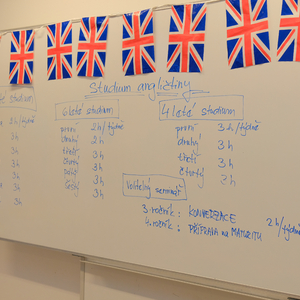 Studium angličtiny
studium
2h/týdně
3h
3h
3h
3h
3h
3h
3h
6 leté studium
první 2h/týdně
druhý 2h
třetí 3h
čtvrtý 3h
pátý 3h
šestý 3h
4 leté studium
první 3h/týdně
druhý 3h
třetí 3h
čtvrtý 2h
Volitelný seminář
3. ročník: KONVERZACE 2h/týdně
4. ročník: PŘÍPRAVA NA MATURITU